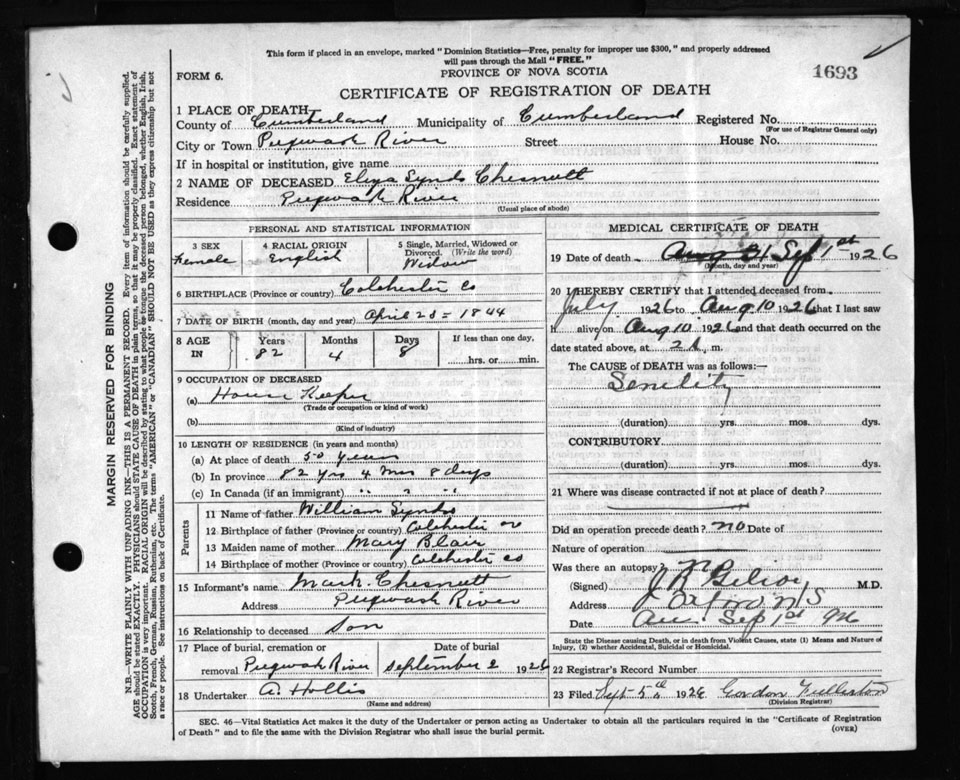 This form if placed in an envelope, marked "Dominion Statistics—Free, penalty for improper use $300," and properly addressed
will pass through the Mail "FREE."
FORM 6.
PROVINCE OF NOVA SCOTIA
1693
CERTIFICATE OF REGISTRATION OF DEATH
1 PLACE OF DEATH—
County of Cumberland Municipality of Cumberland Registered No.
(For use of Registrar General only)
City or Town Pugwash River Street House No.
If in hospital or institution, give name
2 NAME OF DECEASED Eliza Synds Chesnutt
Residence Pugwash River
(Usual place of abode)
PERSONAL AND STATISTICAL INFORMATION
3 SEX 4 RACIAL ORIGIN 5 Single, Married, Widowed or Divorced. (Write the word)
Female English Widow
6 BIRTHPLACE (Province or country) Colchester Co
7 DATE OF BIRTH (month, day and year) April 23 = 1844
8 AGE IN Years Months Days If less than one day,
82 4 8 hrs. or min.
9 OCCUPATION OF DECEASED
(a) House Keeper
(Trade or occupation or kind of work)
(b)
(Kind of industry)
10 LENGTH OF RESIDENCE (in years and months)
(a) At place of death 50 years
(b) In province 82 yrs 4 mos 8 days
(c) In Canada (if an immigrant) " " "
Parents
11 Name of father William Synds
12 Birthplace of father (Province or country) Colchester Co
13 Maiden name of mother Mary Blair
14 Birthplace of mother (Province or country) Colchester Co
15 Informant's name Mark Chesnutt
Address Pugwash River
16 Relationship to deceased Son
17 Place of burial, cremation or Date of burial
removal Pugwash River September 2 1926
18 Undertaker A. Hollis
(Name and address)
MEDICAL CERTIFICATE OF DEATH
19 Date of death Aug 31 Sep 1st 1926
(Month, day and year)
20 I HEREBY CERTIFY that I attended deceased from
July 1926 to Aug 10 1926 that I last saw
h alive on Aug 10 1926 and that death occurred on the
date stated above, at 2 A. m.
The CAUSE of DEATH was as follows:—
Senility
(duration) yrs. mos. dys.
CONTRIBUTORY
(duration) yrs. mos. dys.
21 Where was disease contracted if not at place of death?
Did an operation precede death? no Date of
Nature of operation
Was there an autopsy? n
(Signed) M.D.
Address Oxford N S
Date Sep 1st 1926
State the Disease causing Death, or in death from Violent Causes, state (1) Means and Nature of
Injury, (2) whether Accidental, Suicidal or Homicidal.
22 Registrar's Record Number
23 Filed Sept 5th 1926 Gordon Fullerton
(Division Registrar)
SEC. 46—Vital Statistics Act makes it the duty of the Undertaker or person acting as Undertaker to obtain all the particulars required in the "Certificate of Registration
of Death" and to file the same with the Division Registrar who shall issue the burial permit.
(OVER)
MARGIN RESERVED FOR BINDING
N.B.—WRITE PLAINLY WITH UNFADING INK—THIS IS A PERMANENT RECORD. Every item of information should be carefully supplied.
AGE should be stated EXACTLY. PHYSICIANS should STATE CAUSE OF DEATH in plain terms, so that it may be properly classified. Exact statement of
OCCUPATION is very important. RACIAL ORIGIN will be described by stating to what people or tongue the deceased person belonged, whether English, Irish,
Scotch, French, German, Russian, Ruthenian, etc. The terms "AMERICAN" or "CANADIAN" SHOULD NOT BE USED as they express citizenship but not
a race or people. See instructions on back of Certificate.